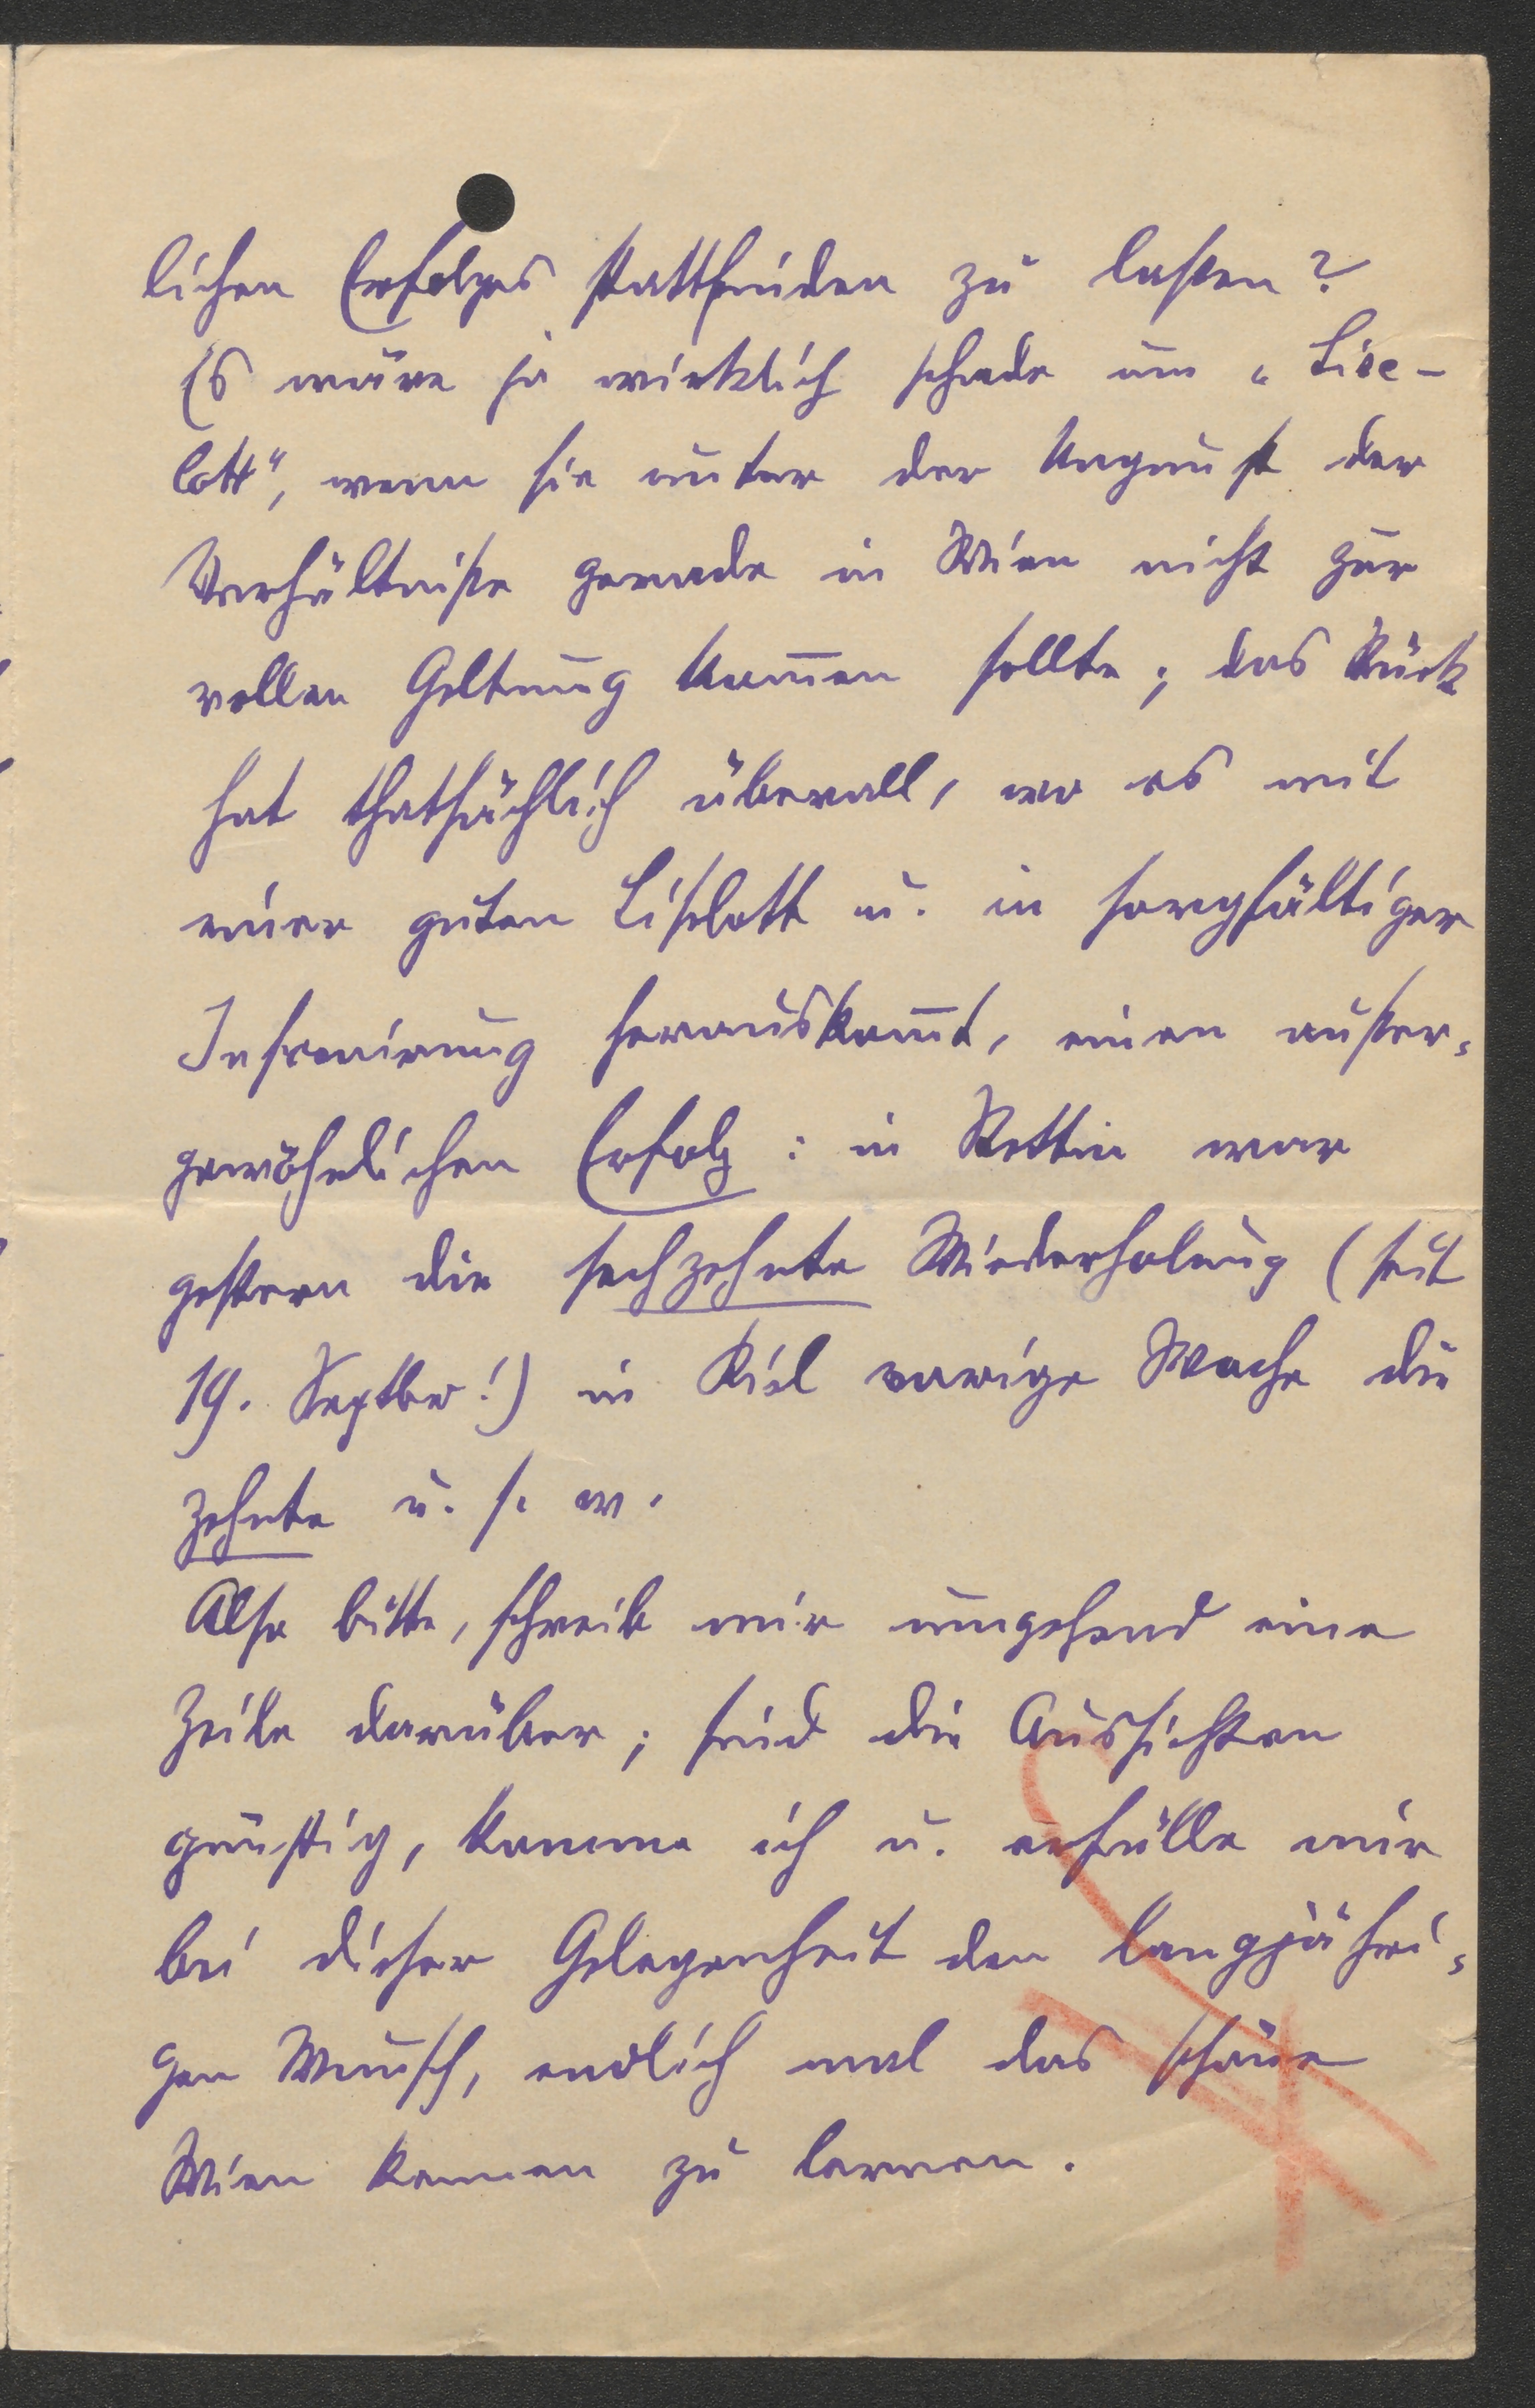 lichen Erfolges stattfinden zu lassen?
Es wäre ja wirklich schade um „Lise-
lott", wenn sie unter der Ungunst der
Verhältnisse gerade in Wien nicht zur
vollen Geltung kom̅en sollte; das Stück
hat thatsächlich überall, wo es mit
einer guten Liselott u. in sorgfältiger
Inscenirung herauskom̅t, einen ausser-
gewöhnlichen Erfolg: in Stettin war
gestern die sechzehnte Wiederholung (seit
19. Septbr!) in Kiel vorige Woche die
zehnte u. s. w.
Also bitte, schreib mir umgehend eine
Zeile darüber; sind die Aussichten
günstig, komme ich u. erfülle mir
bei dieser Gelegenheit den langjähri-
gen Wunsch, endlich mal das schöne
Wien kennen zu lernen.